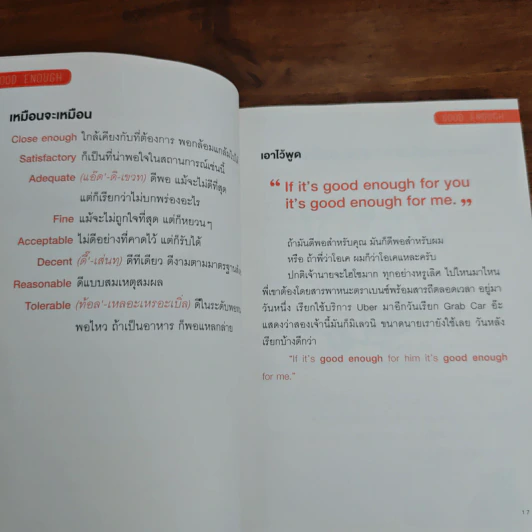 GOOD ENOUGH
เหมือนจะเหมือน
Close enough ใกล้เคียงกับที่ต้องการ พอกล้อมแกล้มไปได้
Satisfactory ก็เป็นที่น่าพอใจในสถานการณ์เช่นนี้
Adequate (แอ๊ด'-ดิ-เขวท) ดีพอ แม้จะไม่ดีที่สุด
แต่ก็เรียกว่าไม่บกพร่องอะไร
Fine แม้จะไม่ถูกใจที่สุด แต่ก็หยวนๆ
Acceptable ไม่ดีอย่างที่คาดไว้ แต่ก็รับได้
Decent (ดี๊'-เส่นทฺ) ดีทีเดียว ดีงามตามมาตรฐาน
Reasonable ดีแบบสมเหตุสมผล
Tolerable (ท้อล'-เหลอะเหรอะเบิ้ล) ดีในระดับพอทน
พอไหว ถ้าเป็นอาหาร ก็พอแหลกล่าย
GOOD ENOUGH
เอาไว้พูด
“ If it's good enough for you
it's good enough for me. ”
ถ้ามันดีพอสำหรับคุณ มันก็ดีพอสำหรับผม
หรือ ถ้าพี่ว่าโอเค ผมก็ว่าโอเคแหละครับ
ปกติเจ้านายจะไฮโซมาก ทุกอย่างหรูเลิศ ไปไหนมาไหน
พี่เขาต้องโดยสารพาหนะตราเบนซ์พร้อมสารถีตลอดเวลา อยู่มา
วันหนึ่ง เรียกใช้บริการ Uber มาอีกวันเรียก Grab Car อ๊ะ
แสดงว่าสองเจ้านี้มันก็มิเลวนิ ขนาดนายเรายังใช้เลย วันหลัง
เรียกบ้างดีกว่า
"If it's good enough for him it's good enough
for me."
17